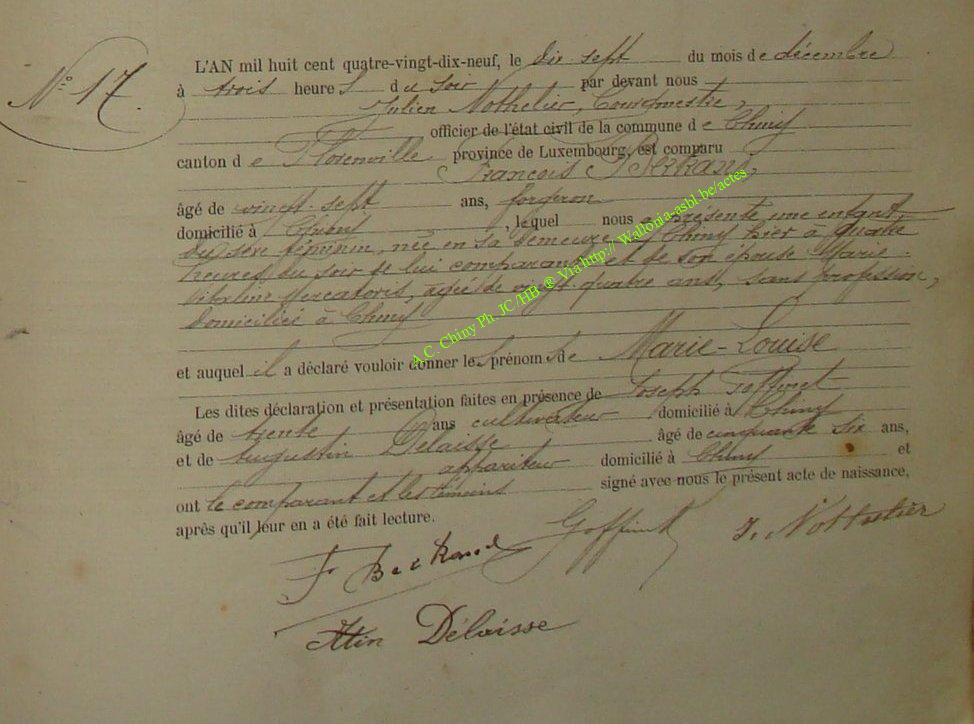 N° 17.
L'AN mil huit cent quatre-vingt-dix-neuf, le dix sept du mois de décembre
à trois heures du soir par devant nous
Julien Nothelier, Bourgmestre,
officier de l'état civil de la commune de Chiny
canton de Florenville province de Luxembourg, est comparu
François Bertrand,
âgé de vingt-sept ans, forgeron
domicilié à Chiny, lequel nous a présenté une enfant
du sexe féminin, née en sa demeure à Chiny hier à quatre
heures du soir de lui comparant et de son épouse Marie
Mercatoris, âgée de vingt quatre ans, sans profession,
domiciliée à Chiny
et auquel il a déclaré vouloir donner les prénoms de Marie-Louise
Les dites déclaration et présentation faites en présence de Joseph Goffinet
âgé de trente ans cultivateur domicilié à Chiny
et de Augustin Délaisse âgé de cinquante six ans,
appariteur domicilié à Chiny et
ont le comparant et les témoins signé avec nous le présent acte de naissance,
après qu'il leur en a été fait lecture.
F Bertrand Goffinet J. Nothelier
Atin Délaisse
A.C. Chiny Ph. JC/HB ® Via http:// Wallonia-asbl.be/actes